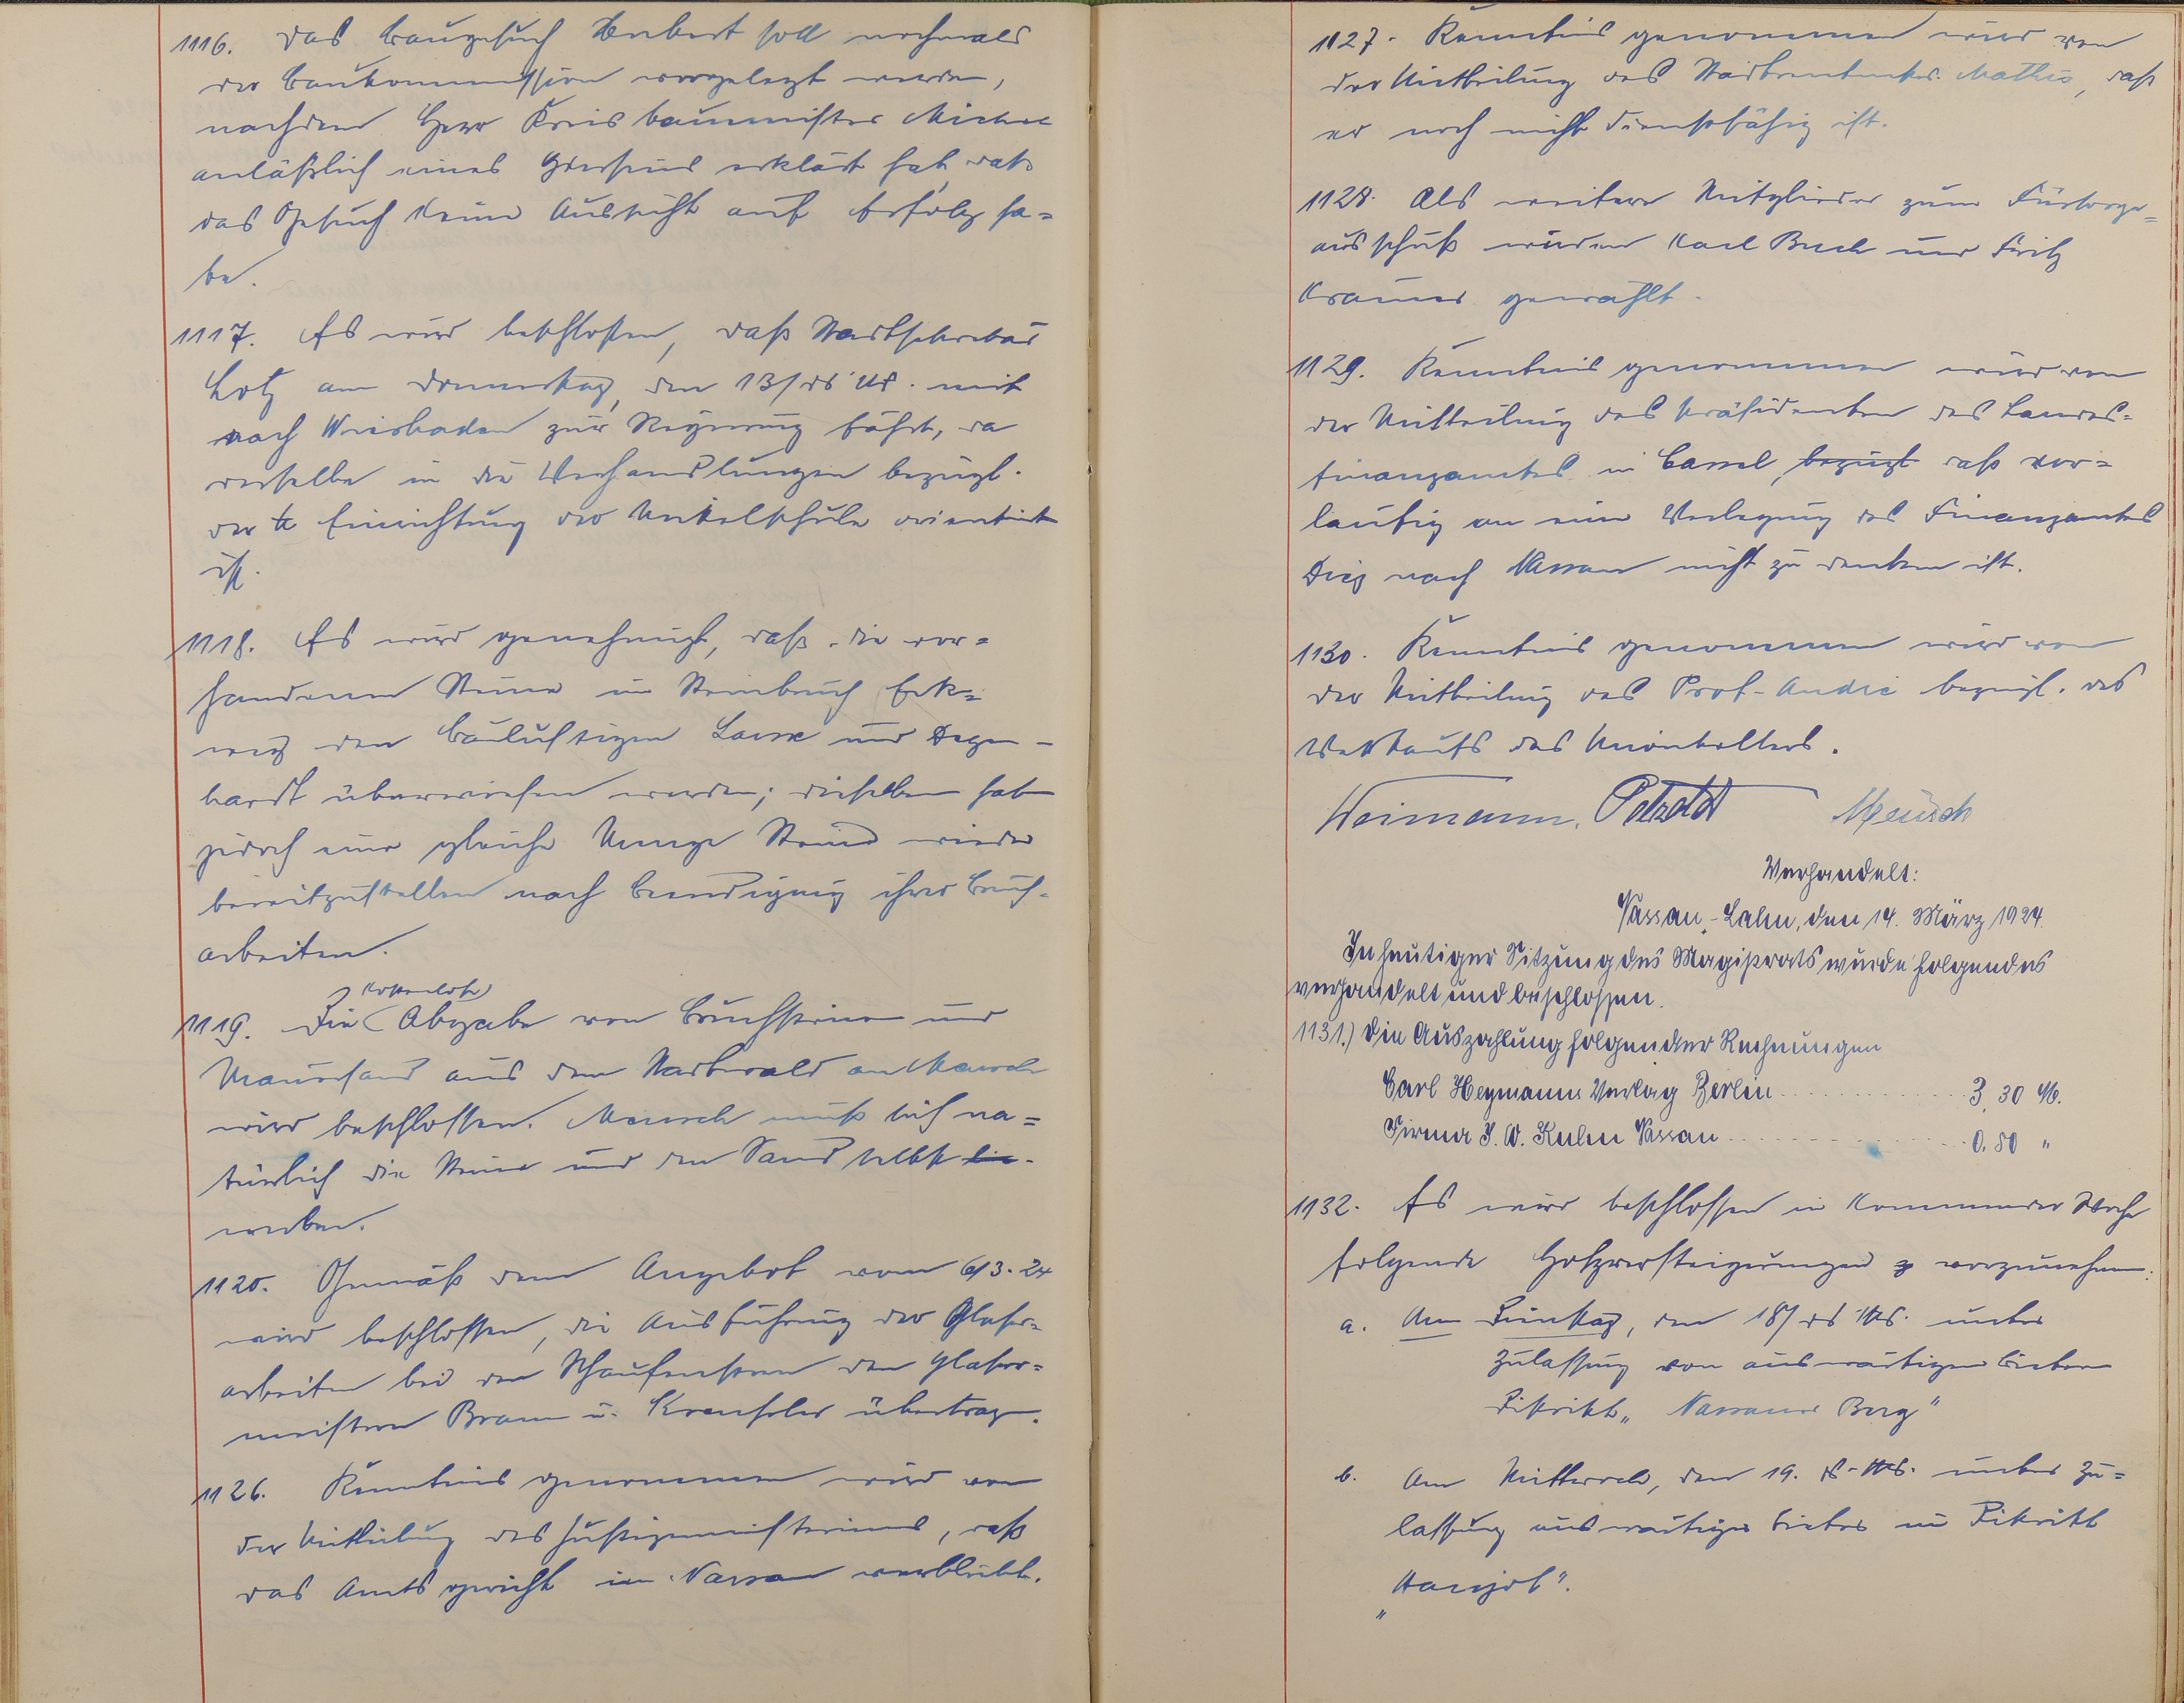 1116. Das Baugesuch Herbert soll nochmals
der Baukommission vorgelegt werden,
nachdem Herr Kreisbaumeister Michel
anläßlich eines Hierseins erklärt hat, daß
das Gesuch keine Aussicht auf Erfolg ha=
be.
1117. Es wird beschlossen, daß Stadtsekretär
Lotz am Donnerstag, den 13/ ds Mts. mit
nach Wiesbaden zur Regierung fährt, da
derselbe in die Verhandlungen bezügl.
der Einrichtung der Mittelschule orientiert
ist.
1118. Es wird genehmigt, daß die vor=
handenen Steine im Steinbruch
den Baulustigen und Degen-
hardt überwiesen werden; dieselben haben
jedoch eine gleiche Menge Steine wieder
bereitzustellen nach Beendigung ihrer Bruch-
arbeiten.
kostenlose
1119. Die Abgabe von Bruchsteinen und
Mauersand aus dem Stadtwald an Meusch
wird beschlossen. Meusch muß sich na=
türlich die Steine und den Sand selbst
werben.
1120. Gemäß dem Angebot vom 6/3. 24
wird beschlossen, die Ausführung der Glaser=
arbeiten bei den Schaufenstern den Glaser=
meistern Braun u. übertragen.
1126. Kenntnis genommen wird von
der Mitteilung des Justizministeriums, daß
das Amtsgericht in Nassau verbleibt.
1127. Kenntnis genommen wird von
der Mitteilung des Stadtrentmstrs. Mathis, daß
er noch nicht dienstfähig ist.
1128. Als weitere Mitglieder zum Fürsorge=
ausschuß wurden Karl Buch und Fritz
Kramer gewählt.
1129. Kenntnis genommen wird von
der Mitteilung des Präsidenten des Landes=
finanzamtes in Cassel, bezügl daß vor=
läufig an eine Verlegung des Finanzamtes
Diez nach Nassau nicht zu denken ist.
1130. Kenntnis genommen wird von
der Mitteilung des Prof. André bezügl. des
Verkaufs des
Weimann. Petzold Meusch
Verhandelt:
Nassau-Lahn, den 14. März 1924.
In heutiger Sitzung des Magistrats wurde folgendes
verhandelt und beschlossen.
1131.) Die Auszahlung folgender Rechnungen
Carl Heymanns Verlag Berlin 3,30 M.
Firma J. W. Kuhn Nassau 0.80 "
1132. Es wird beschlossen in kommender Woche
folgende Holzversteigerungen vorzunehmen:
a. Am Dienstag, den 18/ ds Mts. unter
Zulassung von auswärtigen Bietern
Distrikt „Nassauer Berg"
b. Am Mittwoch, den 19. ds. Mts. unter Zu=
lassung auswärtiger Bieter im Distrikt